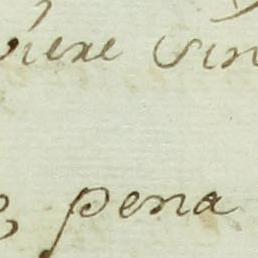 viere sin
pena